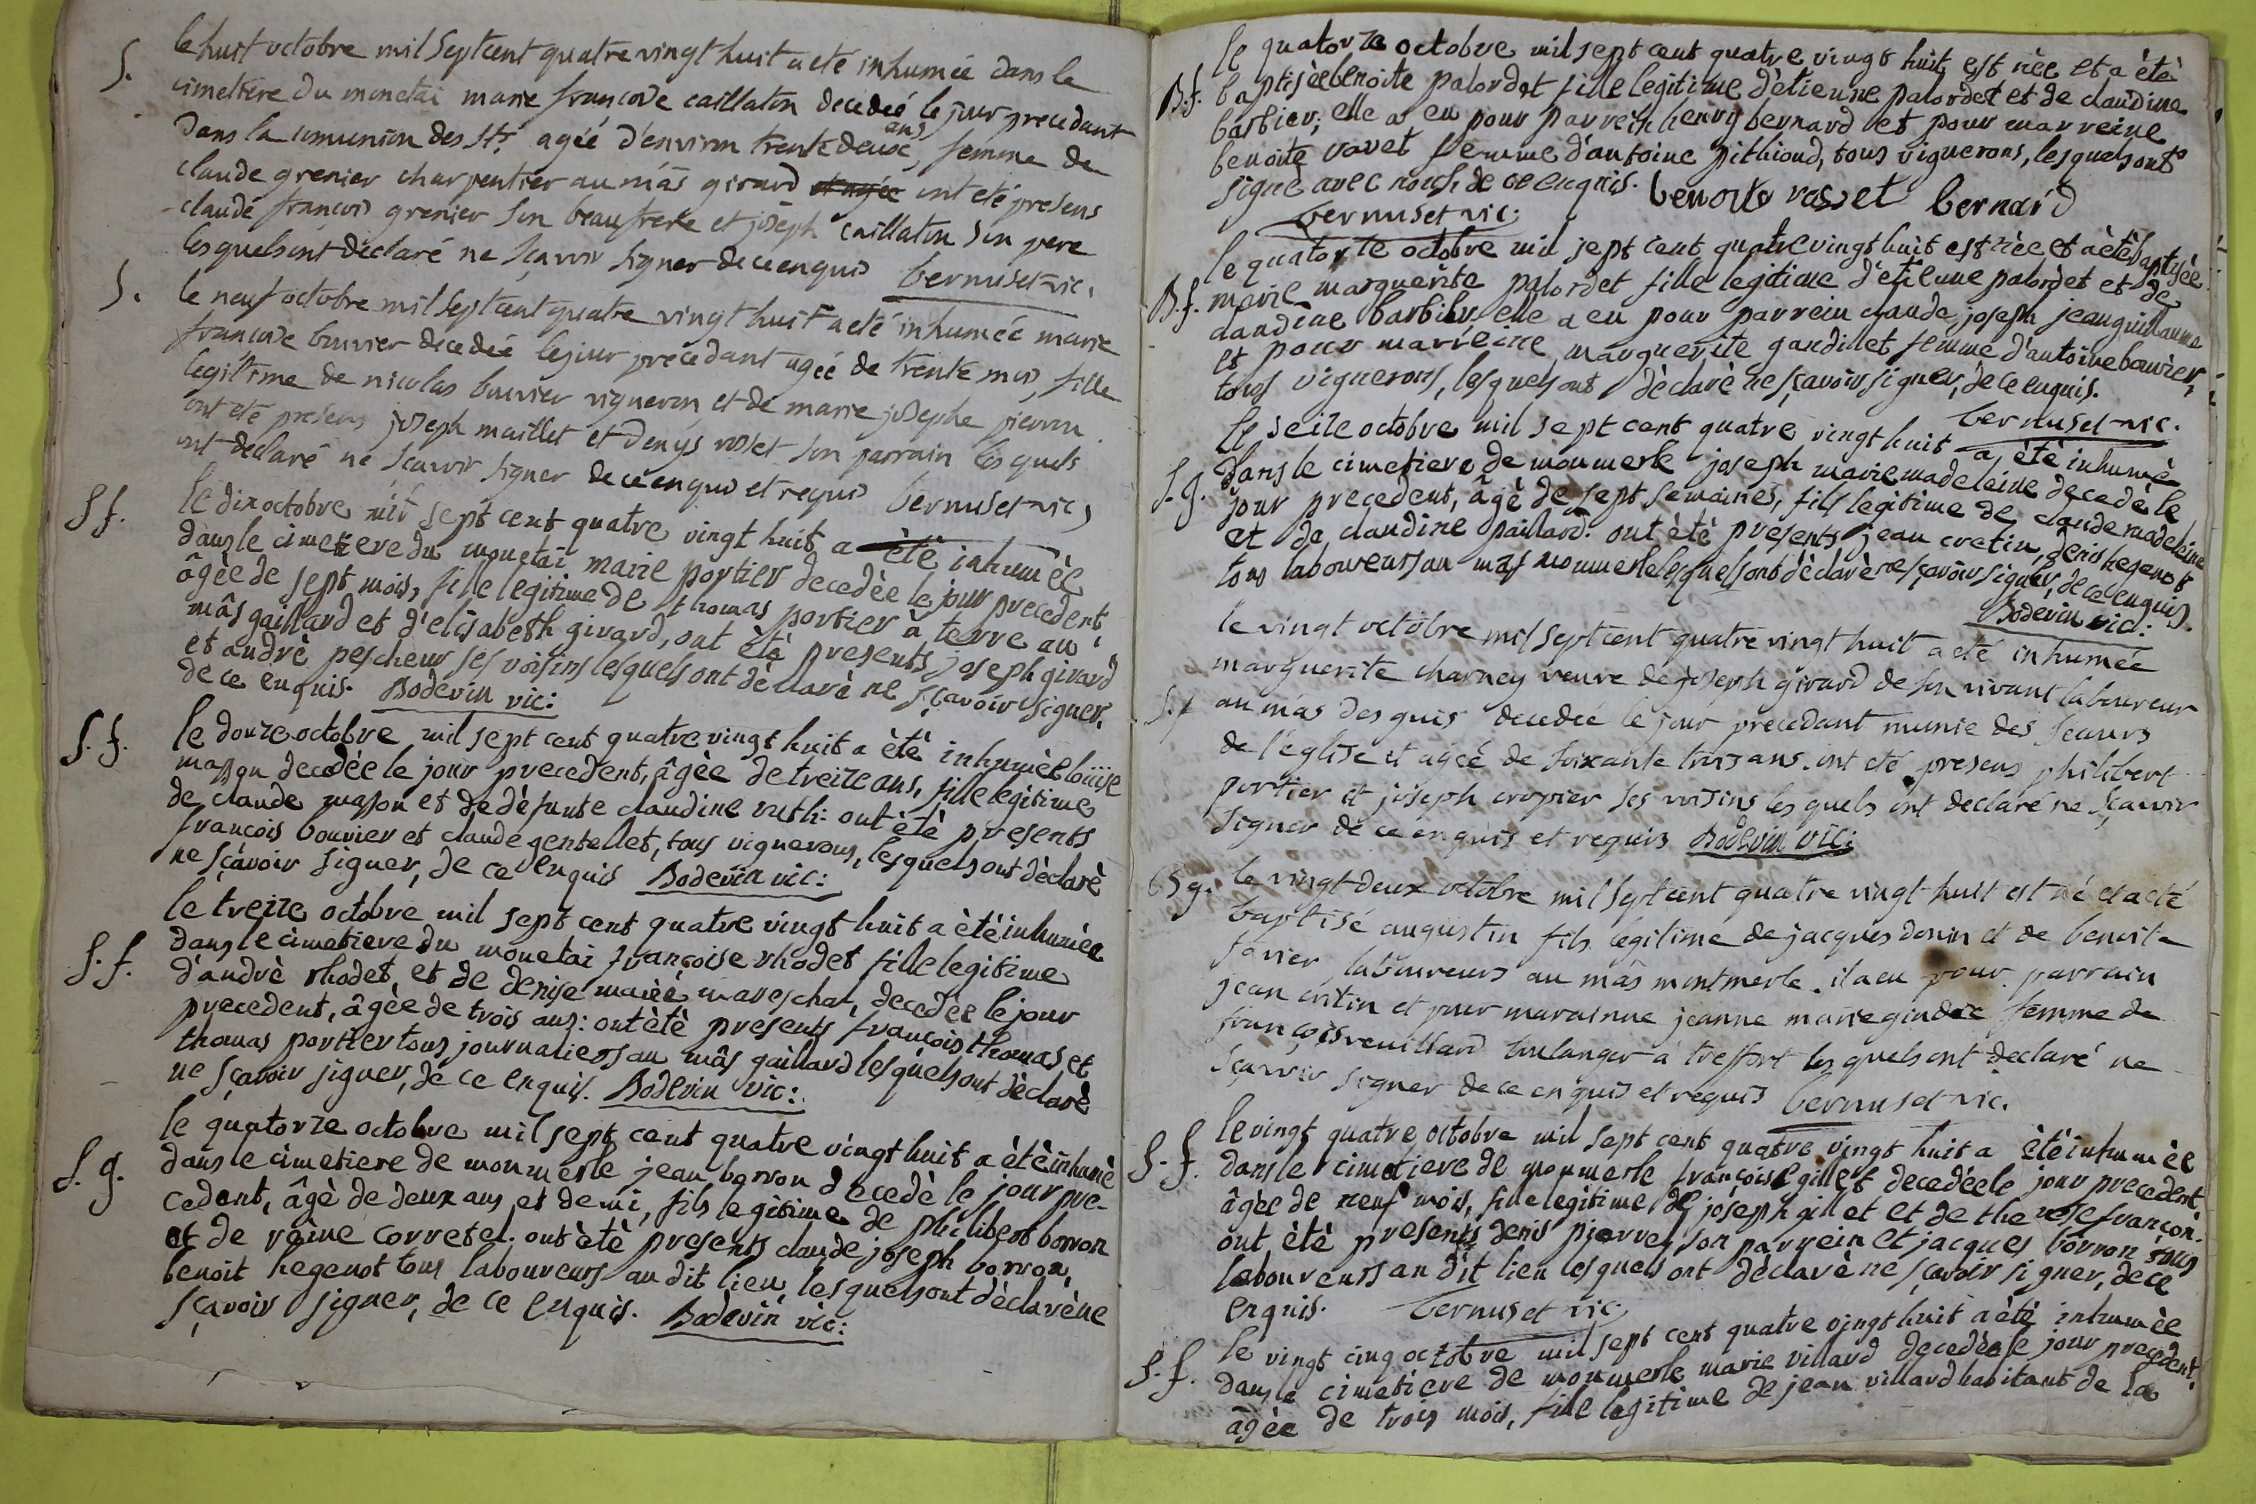 S. le huit octobre mil sept cent quatre vingt huit a eté inhumée dans le
cimettere du monetai marie francoise caillaton decedeé le jour precedant
dans la comunion des Sts. ageé d'environ trente deux ans, femme de
claude grenier charpentier au mâs girard et ageé ont eté presens
claude francois grenier son beaufrere et joseph caillaton son pere
lesquels ont declaré ne sçavoir signer de ce enquis bernuset vic.
S. le neuf octobre mil sept cent quatre vingt huit a eté inhumeé marie
francoise bouvier decedeé le jour précedant ageé de trente mois, fille
legitime de nicolas bouvier vigneron et de marie josephe pierron
ont eté presens joseph maillet et denys rosset son parrain lesquels
ont declaré ne sçavoir signer de ce enquis et requis bernuset vic,
S f. le dix octobre mil sept cent quatre vingt huit a été inhumèe
dans le cimetiere du monetai marie portier decedèe le jour precedent
âgèe de sept mois, fille legitime de thomas portier à terre au
mâs gaillard et d'elisabeth girard, ont ètè presents joseph girard
et andrè pescheur ses voisins lesquels ont dèclarè ne sçavoir signer,
de ce enquis. Bodevin vic:
S. f. le douze octobre mil sept cent quatre vingt huit a ètè inhumèe loüise
masson decedèe le jour precedent, âgèe de treize ans, fille legitime
de claude masson et de dèfunte claudine ruth: ont ètè presents
francois bouvier et claude gentellet, tous vignerons, lesquels ont dèclarè
ne sçavoir signer, de ce enquis Bodevin vic:
S. f. le treize octobre mil sept cent quatre vingt huit a ètè inhumèe
dans le cimetiere du monetai françoise rhodet fille legitime
d'andrè rhodet et de denise mariè mareschal, decedèe le jour
precedent, âgèe de trois ans: ont ètè presents francois thomas et
thomas portier tous journaliers au mâs gaillard lesquels ont dèclarè
ne sçavoir signer, de ce enquis. Bodevin vic:
S. g. le quatorze octobre mil sept cent quatre vingt huit a ètè inhumè
dans le cimetiere de monmerle jean borron decedè le jour pre-
cedent, âgè de deux ans et demi, fils legitime de philibert borron
et de reine corretel. ont ètè presents claude joseph borron,
benoit hegenot tous laboureurs au dit lieu, lesquels ont dèclarè ne
sçavoir signer, de ce enquis. Bodevin vic:
B. f. le quatorze octobre mil sept cent quatre vingt huit est nèe et a ètè
baptisèe benoite palordet fille legitime d'ètienne palordet et de claudine
barbier; elle a eu pour parrein henry bernard et pour marreine
benoite vovet femme d'antoine pithioud, tous vignerons, lesquels ont
signè avec nous, de ce enquis. benoite rosset bernard
bernuset vic:
B. f. le quatorze octobre mil sept cent quatre vingt huit est nèe et a ètè baptisèe
marie marguerite palordet fille legitime d'etienne palordet et de
claudine barbier, elle a eu pour parrein claude joseph jeanguillaume
et pour marreine marguerite gandillet femme d'antoine bouvier,
tous vignerons, lesquels ont dèclarè ne sçavoir signer, de ce enquis.
bernuset vic.
S. g. le seize octobre mil sept cent quatre vingt huit a ètè inhumè
dans le cimetiere de monmerle joseph marie madeleine decedè le
jour precedent, âgè de sept semaines, fils legitime de claude madeleine
et de claudine paillard. ont ètè presents jean cretin, denis hegenot
tous laboureurs au mâs monmerle lesquels ont dèclarè ne sçavoir signer, de ce enquis.
Bodevin vic:
S. f le vingt octobre mil sept cent quatre vingt huit a eté inhumée
marguerite charney veuve de joseph girard de son vivant laboureur
au mâs des guis decedeé le jour precedant munie des secours
de l'église et ageé de soixante trois ans. ont eté presens philibert
portier et joseph cropier ses voisins lesquels ont declaré ne sçavoir
signer de ce enquis et requis Bodevin vic:
B g. le vingt deux octobre mil sept cent quatre vingt huit est né et a eté
baptisé augustin fils legitime de jacques donin et de benoite
favier laboureurs au mâs montmerle. il a eu pour parrain
jean critin et pour marainne jeanne marie gindre femme de
françois reuillard boulanger a treffort lesquels ont declaré ne
sçavoir signer de ce enquis et requis bernuset vic.
S. f. le vingt quatre octobre mil sept cent quatre vingt huit a ètè inhumèe
dans le cimetiere de monmerle françoise gillet decedèe le jour precedent,
âgèe de neuf mois, fille legitime de joseph gillet et de therese françon.
ont ètè presents denis pierre, son parrein et jacques borron tous
laboureurs au dit lieu lesquels ont dèclarè ne sçavoir signer, de ce
enquis. bernuset vic:
S. f. le vingt cinq octobre mil sept cent quatre vingt huit a ètè inhumèe
dans le cimetiere de monmerle marie villard decedèe le jour precedent,
âgèe de trois mois, fille legitime de jean villard habitant de la